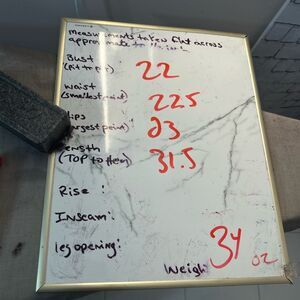 Measurements taken flat across
approximate to
Bust 22
(pit to pit)
Waist 22.5
(smallest point)
Hips 23
(largest point)
Length 31.5
(TOP to Hem)
Rise:
Inseam:
leg opening:
Weigh 34 oz